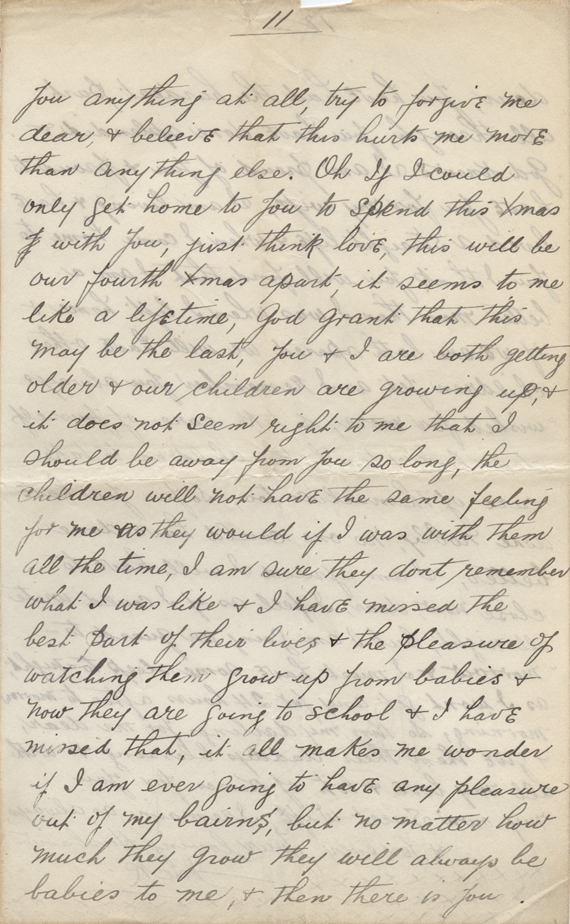 11
you anything at all, try to forgive me
dear, & believe that this hurts me more
than anything else. Oh If I could
only get home to you to spend this Xmas
with you, just think love, this will be
our fourth Xmas apart it seems to me
like a lifetime, God grant that this
may be the last, you & I are both getting
older & our children are growing up, &
it does not seem right to me that I
should be away from you so long, the
children will not have the same feeling
for me as they would if I was with them
all the time, I am sure they dont remember
what I was like & I have missed the
best part of their lives & the pleasure of
watching them grow up from babies &
now they are going to school & I have
missed that, it all makes me wonder
if I am ever going to have any pleasure
out of my bairns, but no matter how
much they grow they will always be
babies to me, & then there is you.